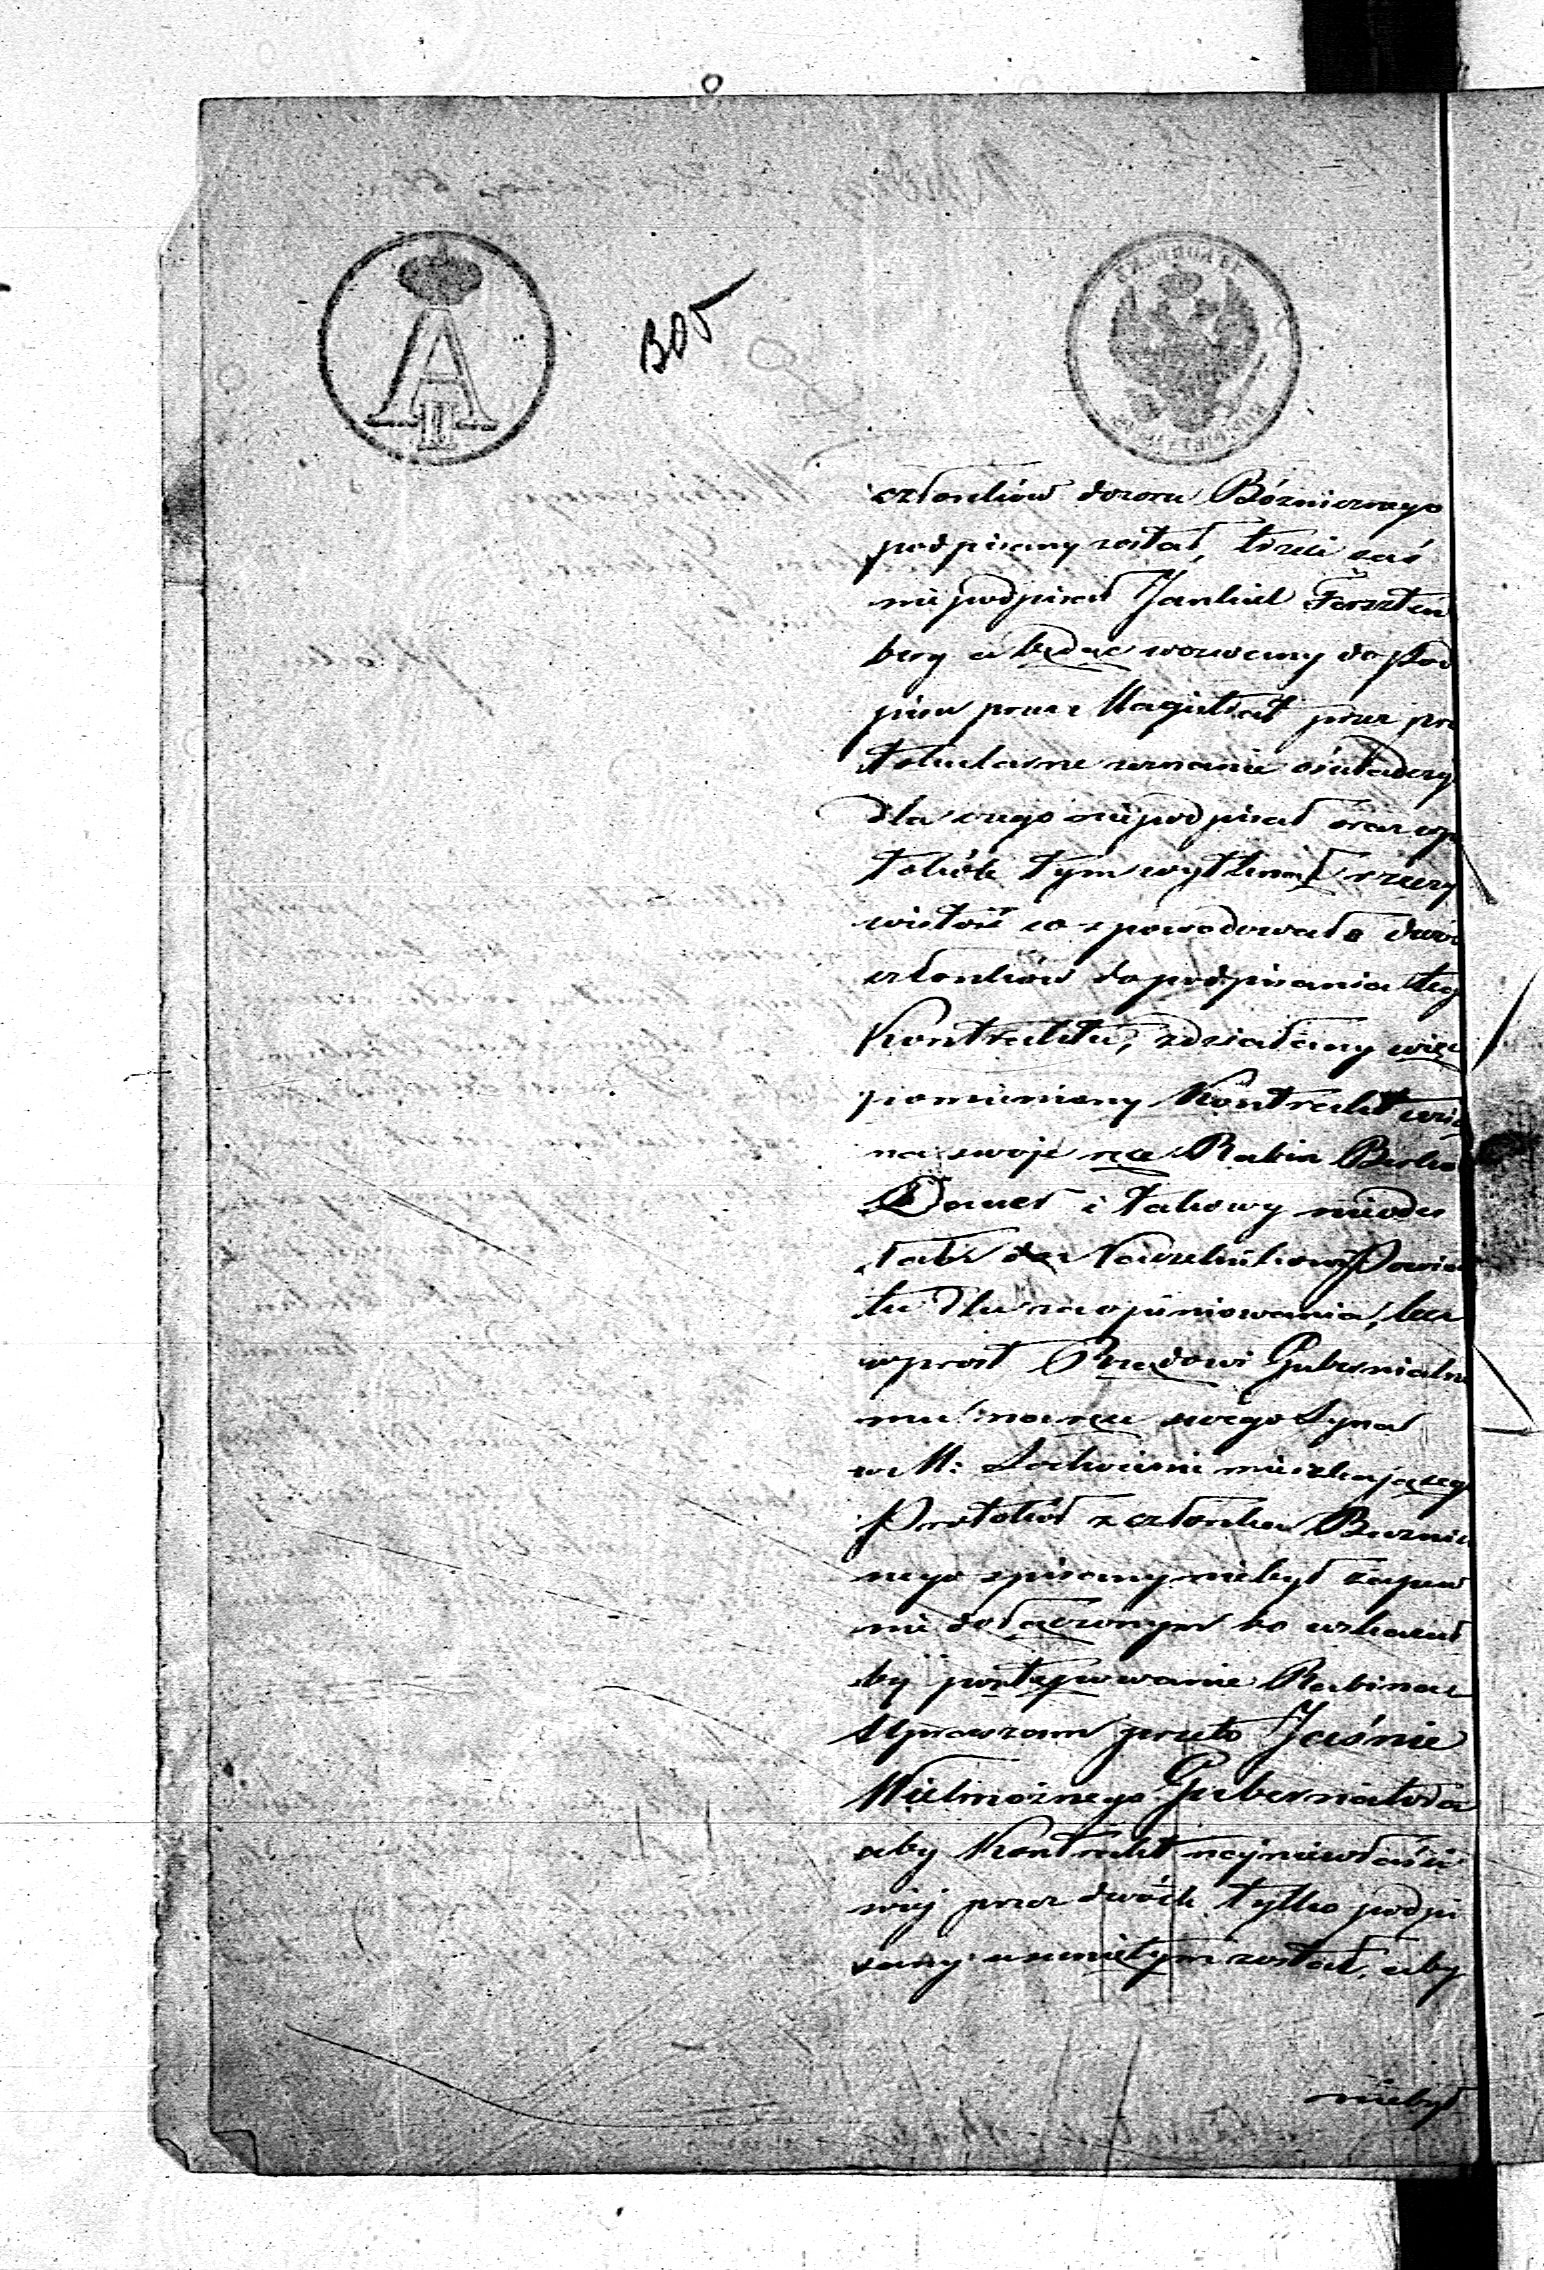 A
II
305
członków dozoru Bóżniczego
podpisany został, trzeci zaś
nie podpisał Jankiel Forszten
berg a będąc wezwany do pod
pisu przez Magistrat przez pro
tokularne zeznanie oświadczył
dla czego nie podpisał oraz w pro
tokóle tym wytknął rzeczy
wistość co spowodowało dwóch
członków do podpisania tego
Kontraktu, zdziałany więc
pomieniony Kontrakt wziął
na swoje ręce Rabin Berko
i takowy nieode
słał do Naczelnika Powia
tu dla zaopiniowania, lecz
wprost Rządowi Gubernialne
mu na ręce swego Syna
w M: mieszkającego
Protokół z członka Bóżni
nego spisany niebył zapew
nie dołączonym bo wskazał
by postępowanie Rabina
Upraszam przeto Jaśnie
Wielmożnego Gubernatora
aby Kontrakt najniewłaści
wiej przez dwóch tylko podpi
sany usuniętym został, aby
niebył